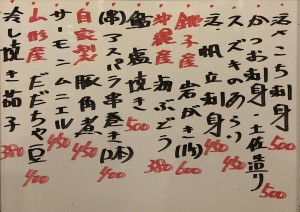 活さこち刺身 500
かつお刺身・土佐造り 500
スズキのあらい 450
活・帆立刺身 450
銚子産 岩がき(1ヶ) 600
沖縄産 海ぶどう 380
鮎塩焼き 500
(串)アスパラ串巻き(2本) 400
自家製 豚角煮 450
サーモンムニエル 450
山形産 だだちゃ豆 400
冷し焼き茄子 380